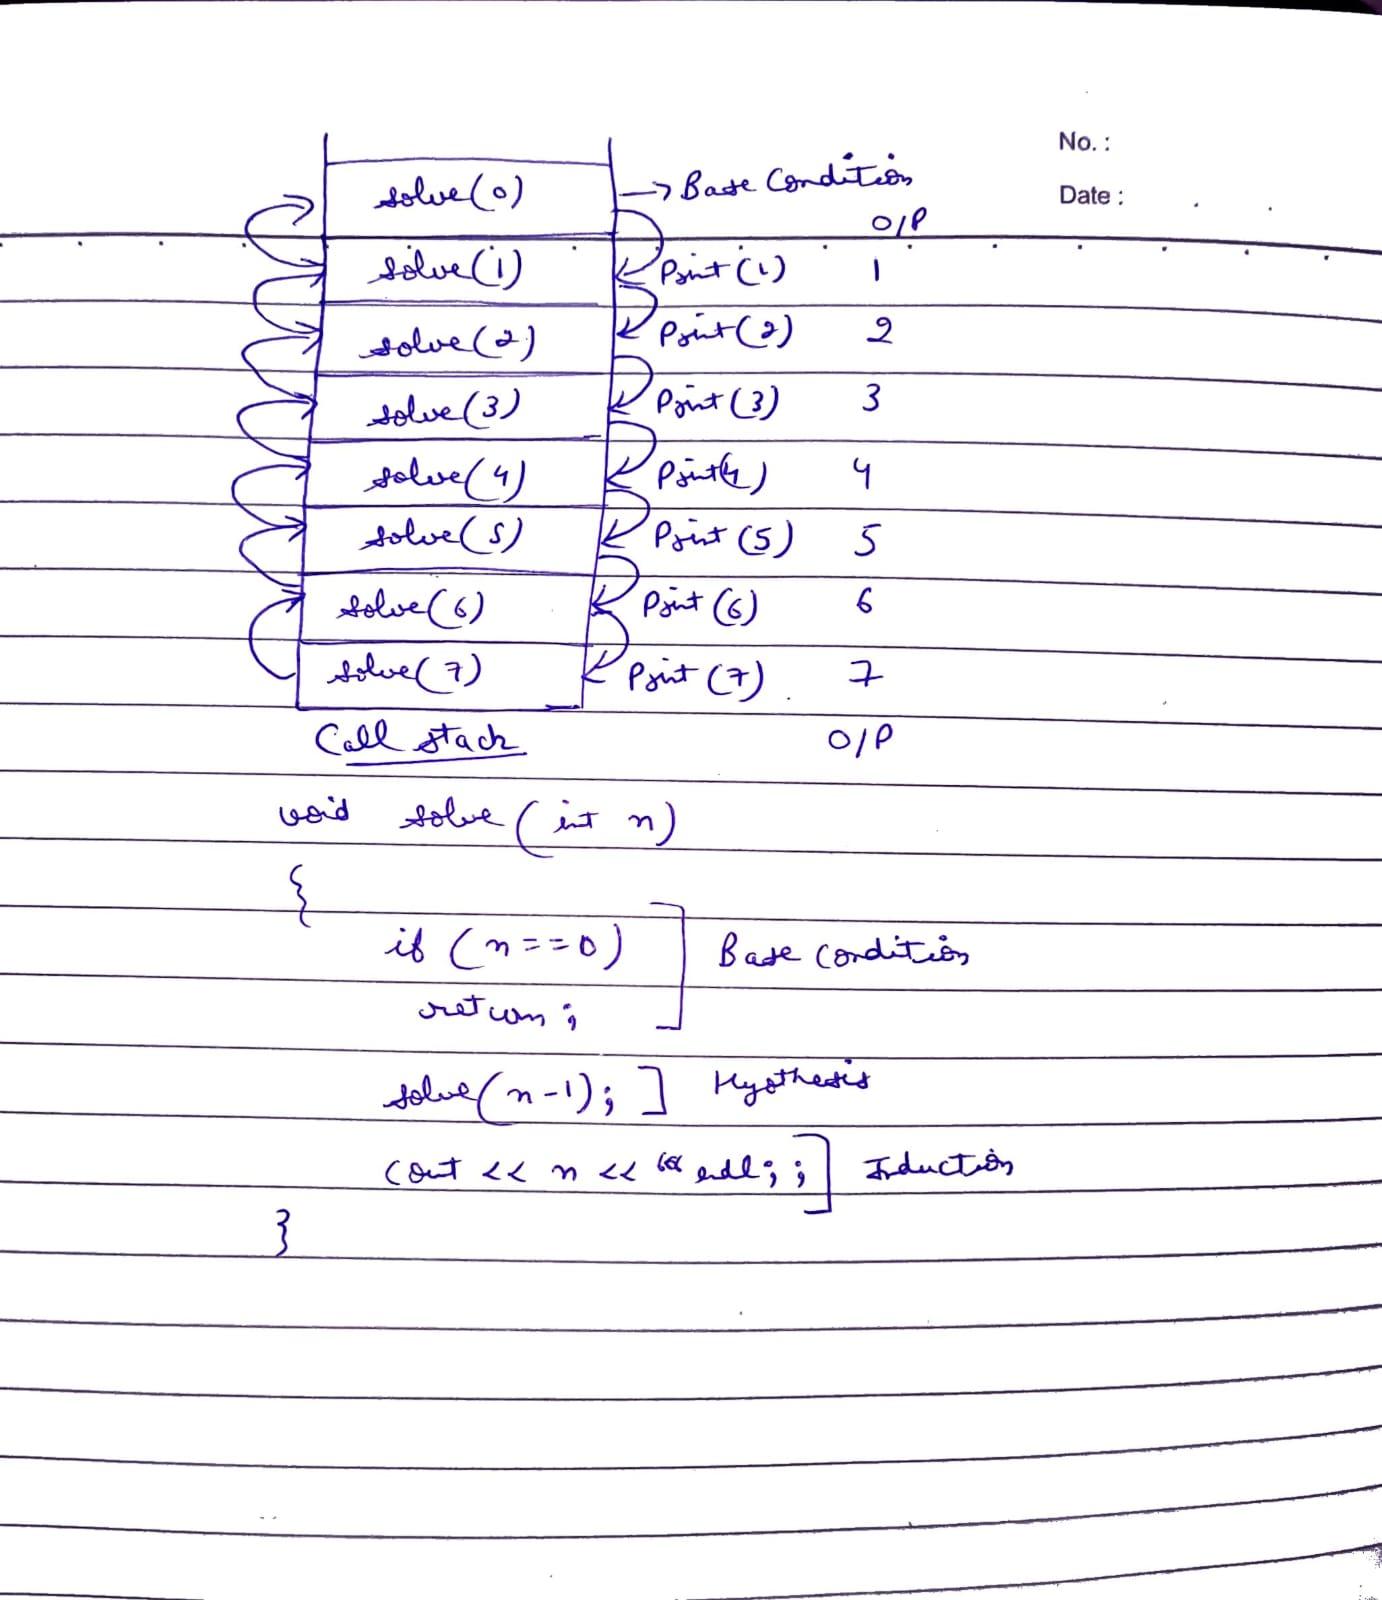 No. :
Date :
solve(0) -> Base Condition
O/P
solve(1) Print (1) 1
solve(2) Print (2) 2
solve(3) Print (3) 3
solve(4) Print(4) 4
solve(5) Print (5) 5
solve(6) Print (6) 6
solve(7) Print (7) 7
Call stack O/P
void solve (int n)
{
if (n==0) ] Base condition
return ;
solve(n-1); ] Hypthesis
cout << n << endl; ; ] Induction
}